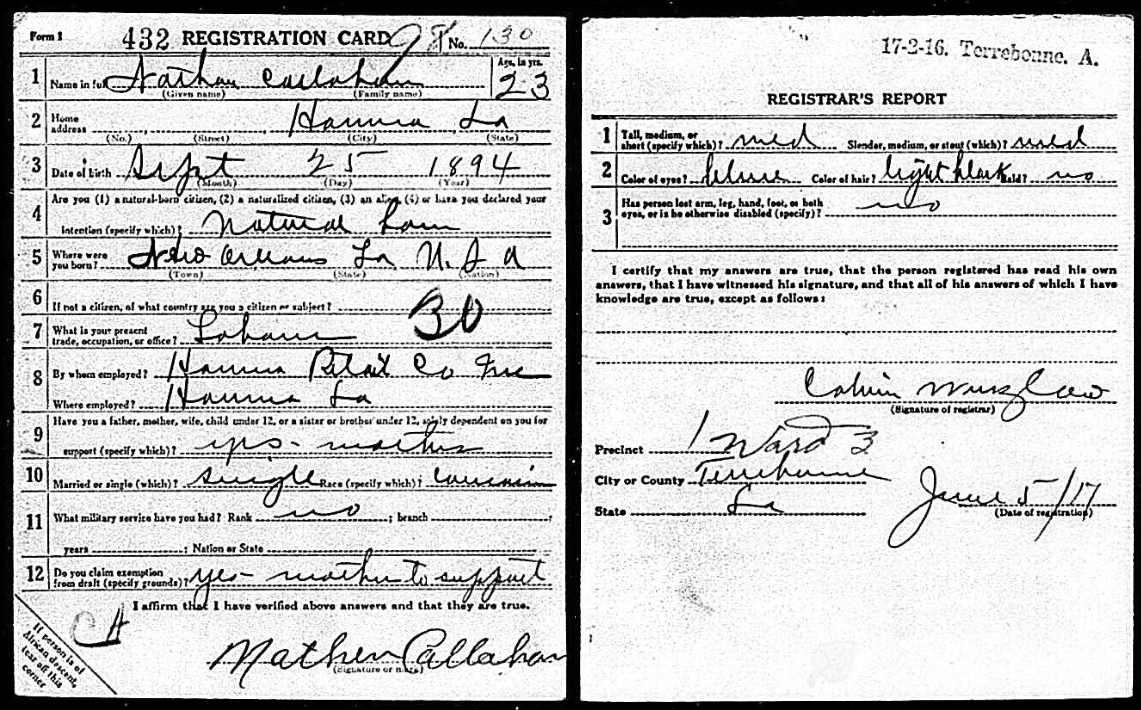 Form 1 432 REGISTRATION CARD No. 130
1 Name in full Nathan Callahan Age, in yrs. 23
(Given name) (Family name)
2 Home address Houma La
(No.) (Street) (City) (State)
3 Date of birth Sept 25 1894
(Month) (Day) (Year)
4 Are you (1) a natural-born citizen, (2) a naturalized citizen, (3) an alien, (4) or have you declared your
intention (specify which)? Natural born
5 Where were you born? New Orleans La U.S.A
(Town) (State) (Nation)
6 If not a citizen, of what country are you a citizen or subject?
30
7 What is your present trade, occupation, or office?
8 By whom employed? Houma Co Inc
Where employed? Houma La
9 Have you a father, mother, wife, child under 12, or a sister or brother under 12, solely dependent on you for
support (specify which)? yes - mother
10 Married or single (which)? Single Race (specify which)? Caucasian
11 What military service have you had? Rank no ; branch ;
years ; Nation or State
12 Do you claim exemption from draft (specify grounds)? yes - mother to support
I affirm that I have verified above answers and that they are true.
If person is of
African descent,
tear off this
corner
Mathen Callahan
(Signature or mark)
17-2-16. Terrebonne. A.
REGISTRAR'S REPORT
1 Tall, medium, or short (specify which)? med Slender, medium, or stout (which)? med
2 Color of eyes? blue Color of hair? light black Bald? no
3 Has person lost arm, leg, hand, foot, or both
eyes, or is he otherwise disabled (specify)? no
I certify that my answers are true, that the person registered has read his own
answers, that I have witnessed his signature, and that all of his answers of which I have
knowledge are true, except as follows:
Calvin
(Signature of registrar)
Precinct 1 Ward 3
City or County Terrebonne
State La June 5/17
(Date of registration)